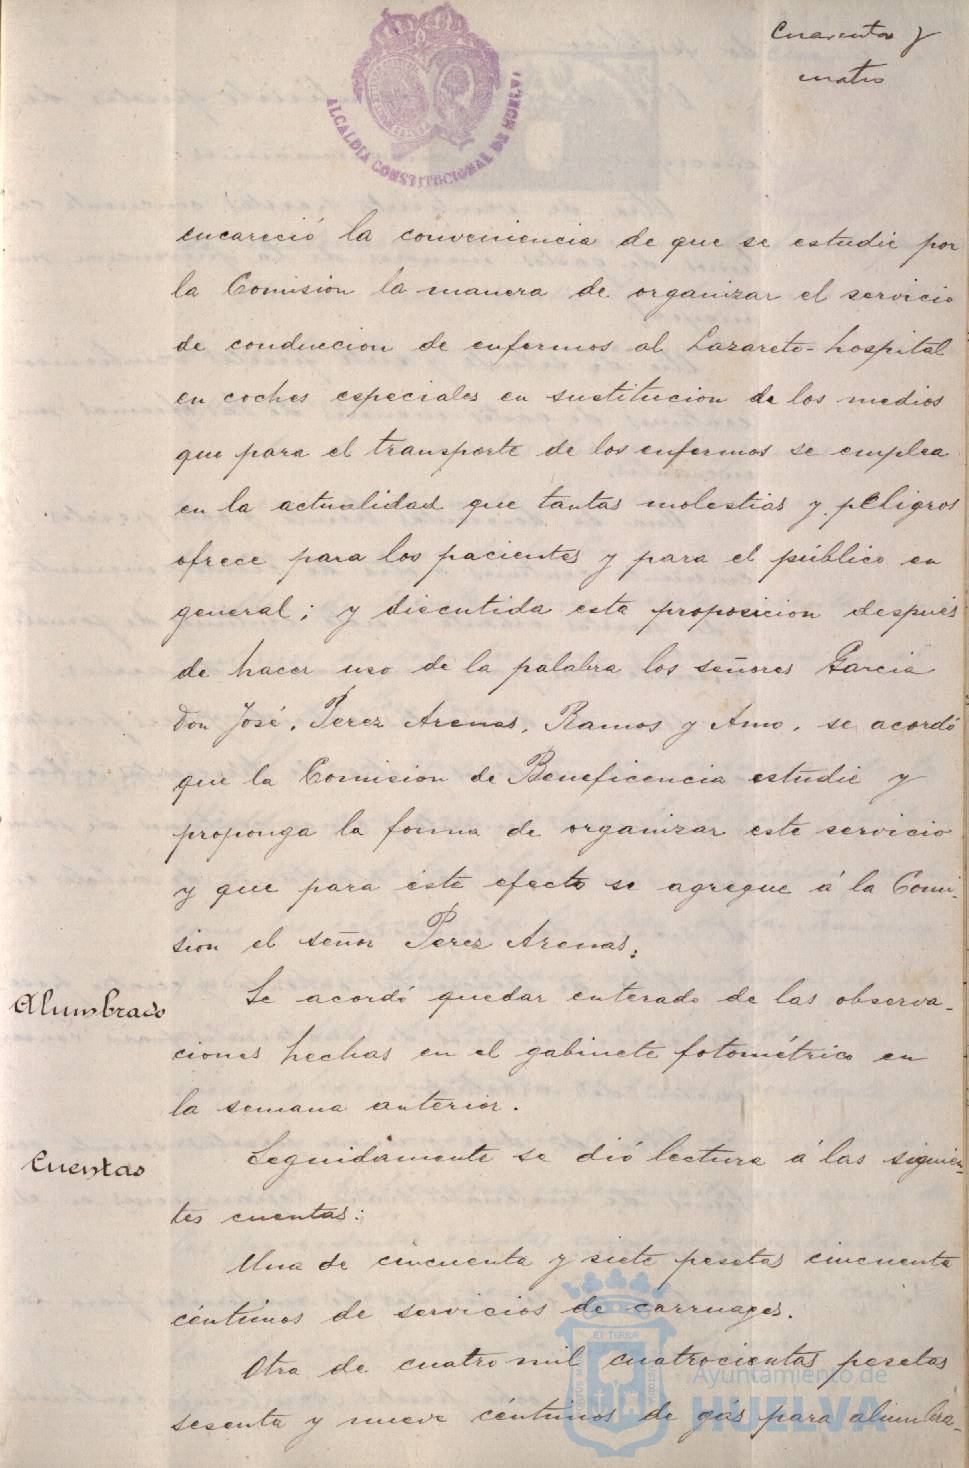 Cuarenta y
cuatro
ALCALDIA CONSTITUCIONAL DE HUELVA
encareció la conveniencia de que se estudie por
la Comision la manera de organizar el servicio
de conduccion de enfermos al Lazareto-hospital
en coches especiales en sustitucion de los medios
que para el transporte de los enfermos se emplea
en la actualidad que tantas molestias y peligros
ofrece para los pacientes y para el público en
general; y discutida esta proposicion despues
de hacer uso de la palabra los señores Garcia
Don José, Perez Arenas, Ramos y Amo, se acordó
que la Comision de Beneficencia estudie y
proponga la forma de organizar este servicio
y que para éste efecto se agregue á la Comi-
sion el señor Perez Arenas.
Alumbrado
Se acordó quedar enterado de las observa-
ciones hechas en el gabinete fotométrico en
la semana anterior.
Cuentas
Seguidamente se dió lectura á las siguien-
tes cuentas:
Una de cincuenta y siete pesetas cincuenta
céntimos de servicios de carruages.
Otra de cuatro mil cuatrocientas pesetas
sesenta y nueve céntimos de gás para alumbra-
Ayuntamiento de
HUELVA